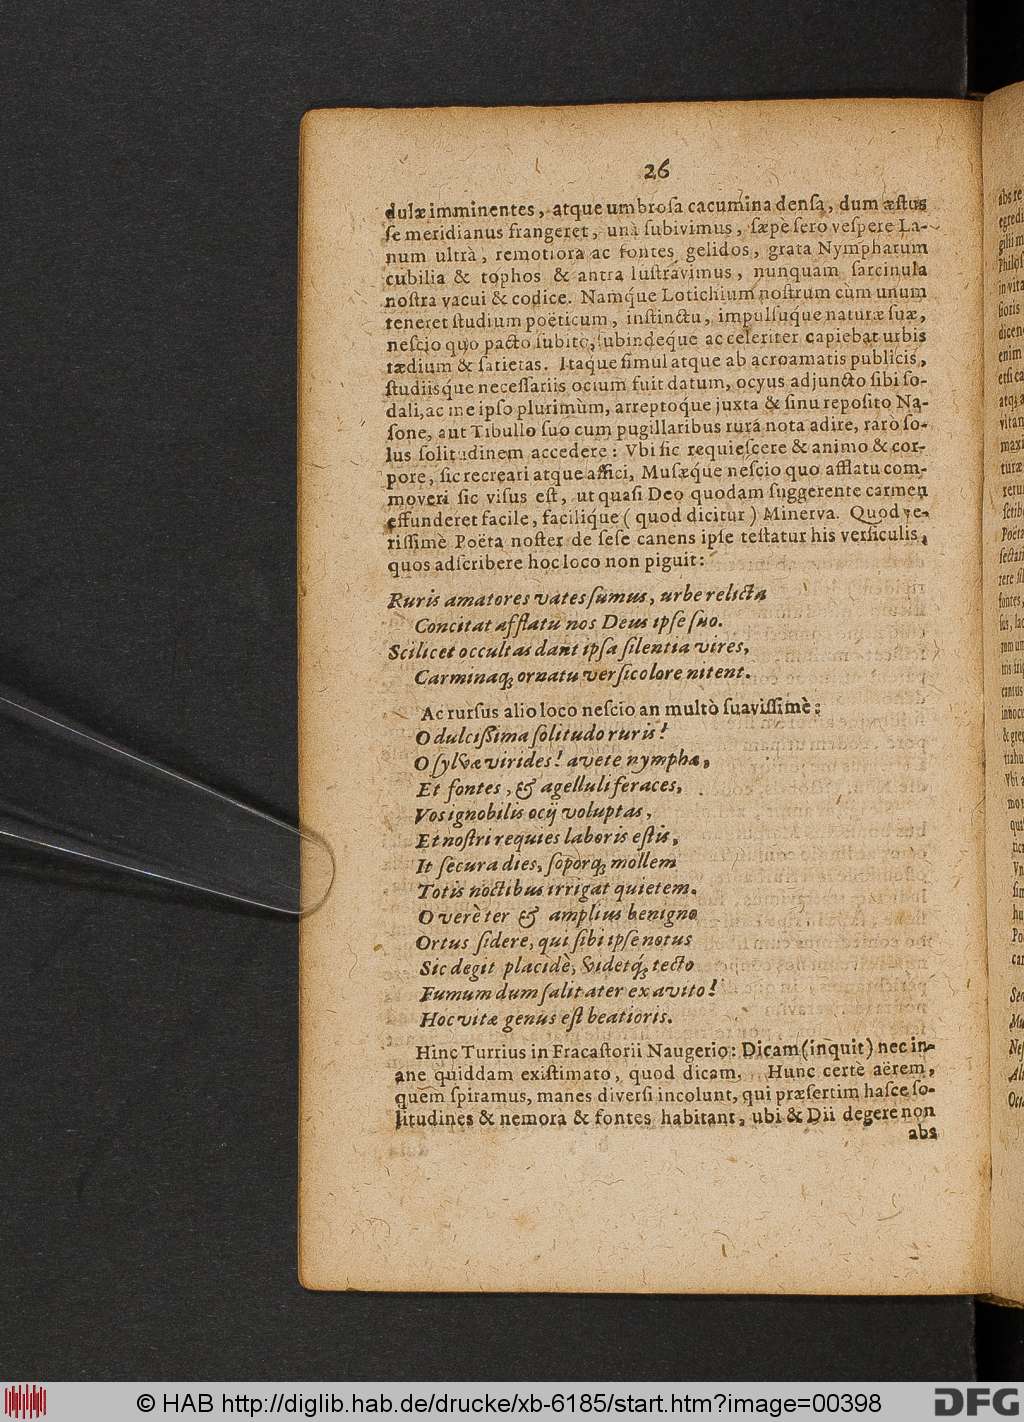 26
dulæ imminentes, atque umbroſa cacumina denſa, dum æſtus
ſe meridianus frangeret, unà ſubivimus, ſæpè ſero veſpere La-
num ultrà, remotiora ac fontes gelidos, grata Nympharum
cubilia & tophos & antra luſtrávimus, nunquam ſarcinula
noſtra vacui & codice. Namq́ue Lotichium noſtrum cùm unum
teneret ſtudium poëticum, inſtinctu, impulſuque naturæ ſuæ,
neſcio quo pacto ſubitò, ſubindeq́ue ac celeriter capiebat urbis
tædium & ſatietas. Itaque ſimul atque ab acroamatis publicis,
ſtudiisq́ue neceſſariis otium fuit datum, ocyus adjuncto ſibi ſo-
dali, ac me ipſo plurimùm, arreptoq́ue juxta & ſinu repoſito Na-
ſone, aut Tibullo ſuo cum pugillaribus rura nota adire, rarò ſo-
lus ſolitudinem accedere: Vbi ſic requieſcere & animo & cor-
pore, ſic recreari atque affici, Muſæq́ue neſcio quo afflatu com-
moveri ſic viſus eſt, ut quaſi Deo quodam ſuggerente carmen
effunderet facile, faciliq́ue ( quod dicitur ) Minerva. Quod ve-
riſſimè Poëta noſter de ſeſe canens ipſe teſtatur his verſiculis,
quos adſcribere hoc loco non piguit:
Ruris amatores vates ſumus, urbe relicta
Concitat afflatu nos Deus ipſe ſuo.
Scilicet occultas dant ipſa ſilentia vires,
Carminaq; ornatu verſicolore nitent.
Ac rurſus alio loco neſcio an multò ſuaviſſimè:
O dulciſſima ſolitudo ruris!
O ſylvæ virides! avete nymphæ,
Et fontes, & agelluli feraces,
Vos ignobilis ocij voluptas,
Et noſtri requies laboris eſtis,
It ſecura dies, ſoporq; mollem
Totis noctibus irrigat quietem.
O verè ter & amplius benigno
Ortus ſidere, qui ſibi ipſe notus
Sic degit placidè, videtq́; tecto
Fumum dum ſalit ater ex avito!
Hoc vitæ genus eſt beatioris.
Hinc Turrius in Fracaſtorii Naugerio: Dicam (inquit) nec in-
ane quiddam exiſtimato, quod dicam. Hunc certè aërem,
quem ſpiramus, manes diverſi incolunt, qui præſertim haſce ſo-
litudines & nemora & fontes habitant, ubi & Dii degere non
abs
© HAB http://diglib.hab.de/drucke/xb-6185/start.htm?image=00398
DFG